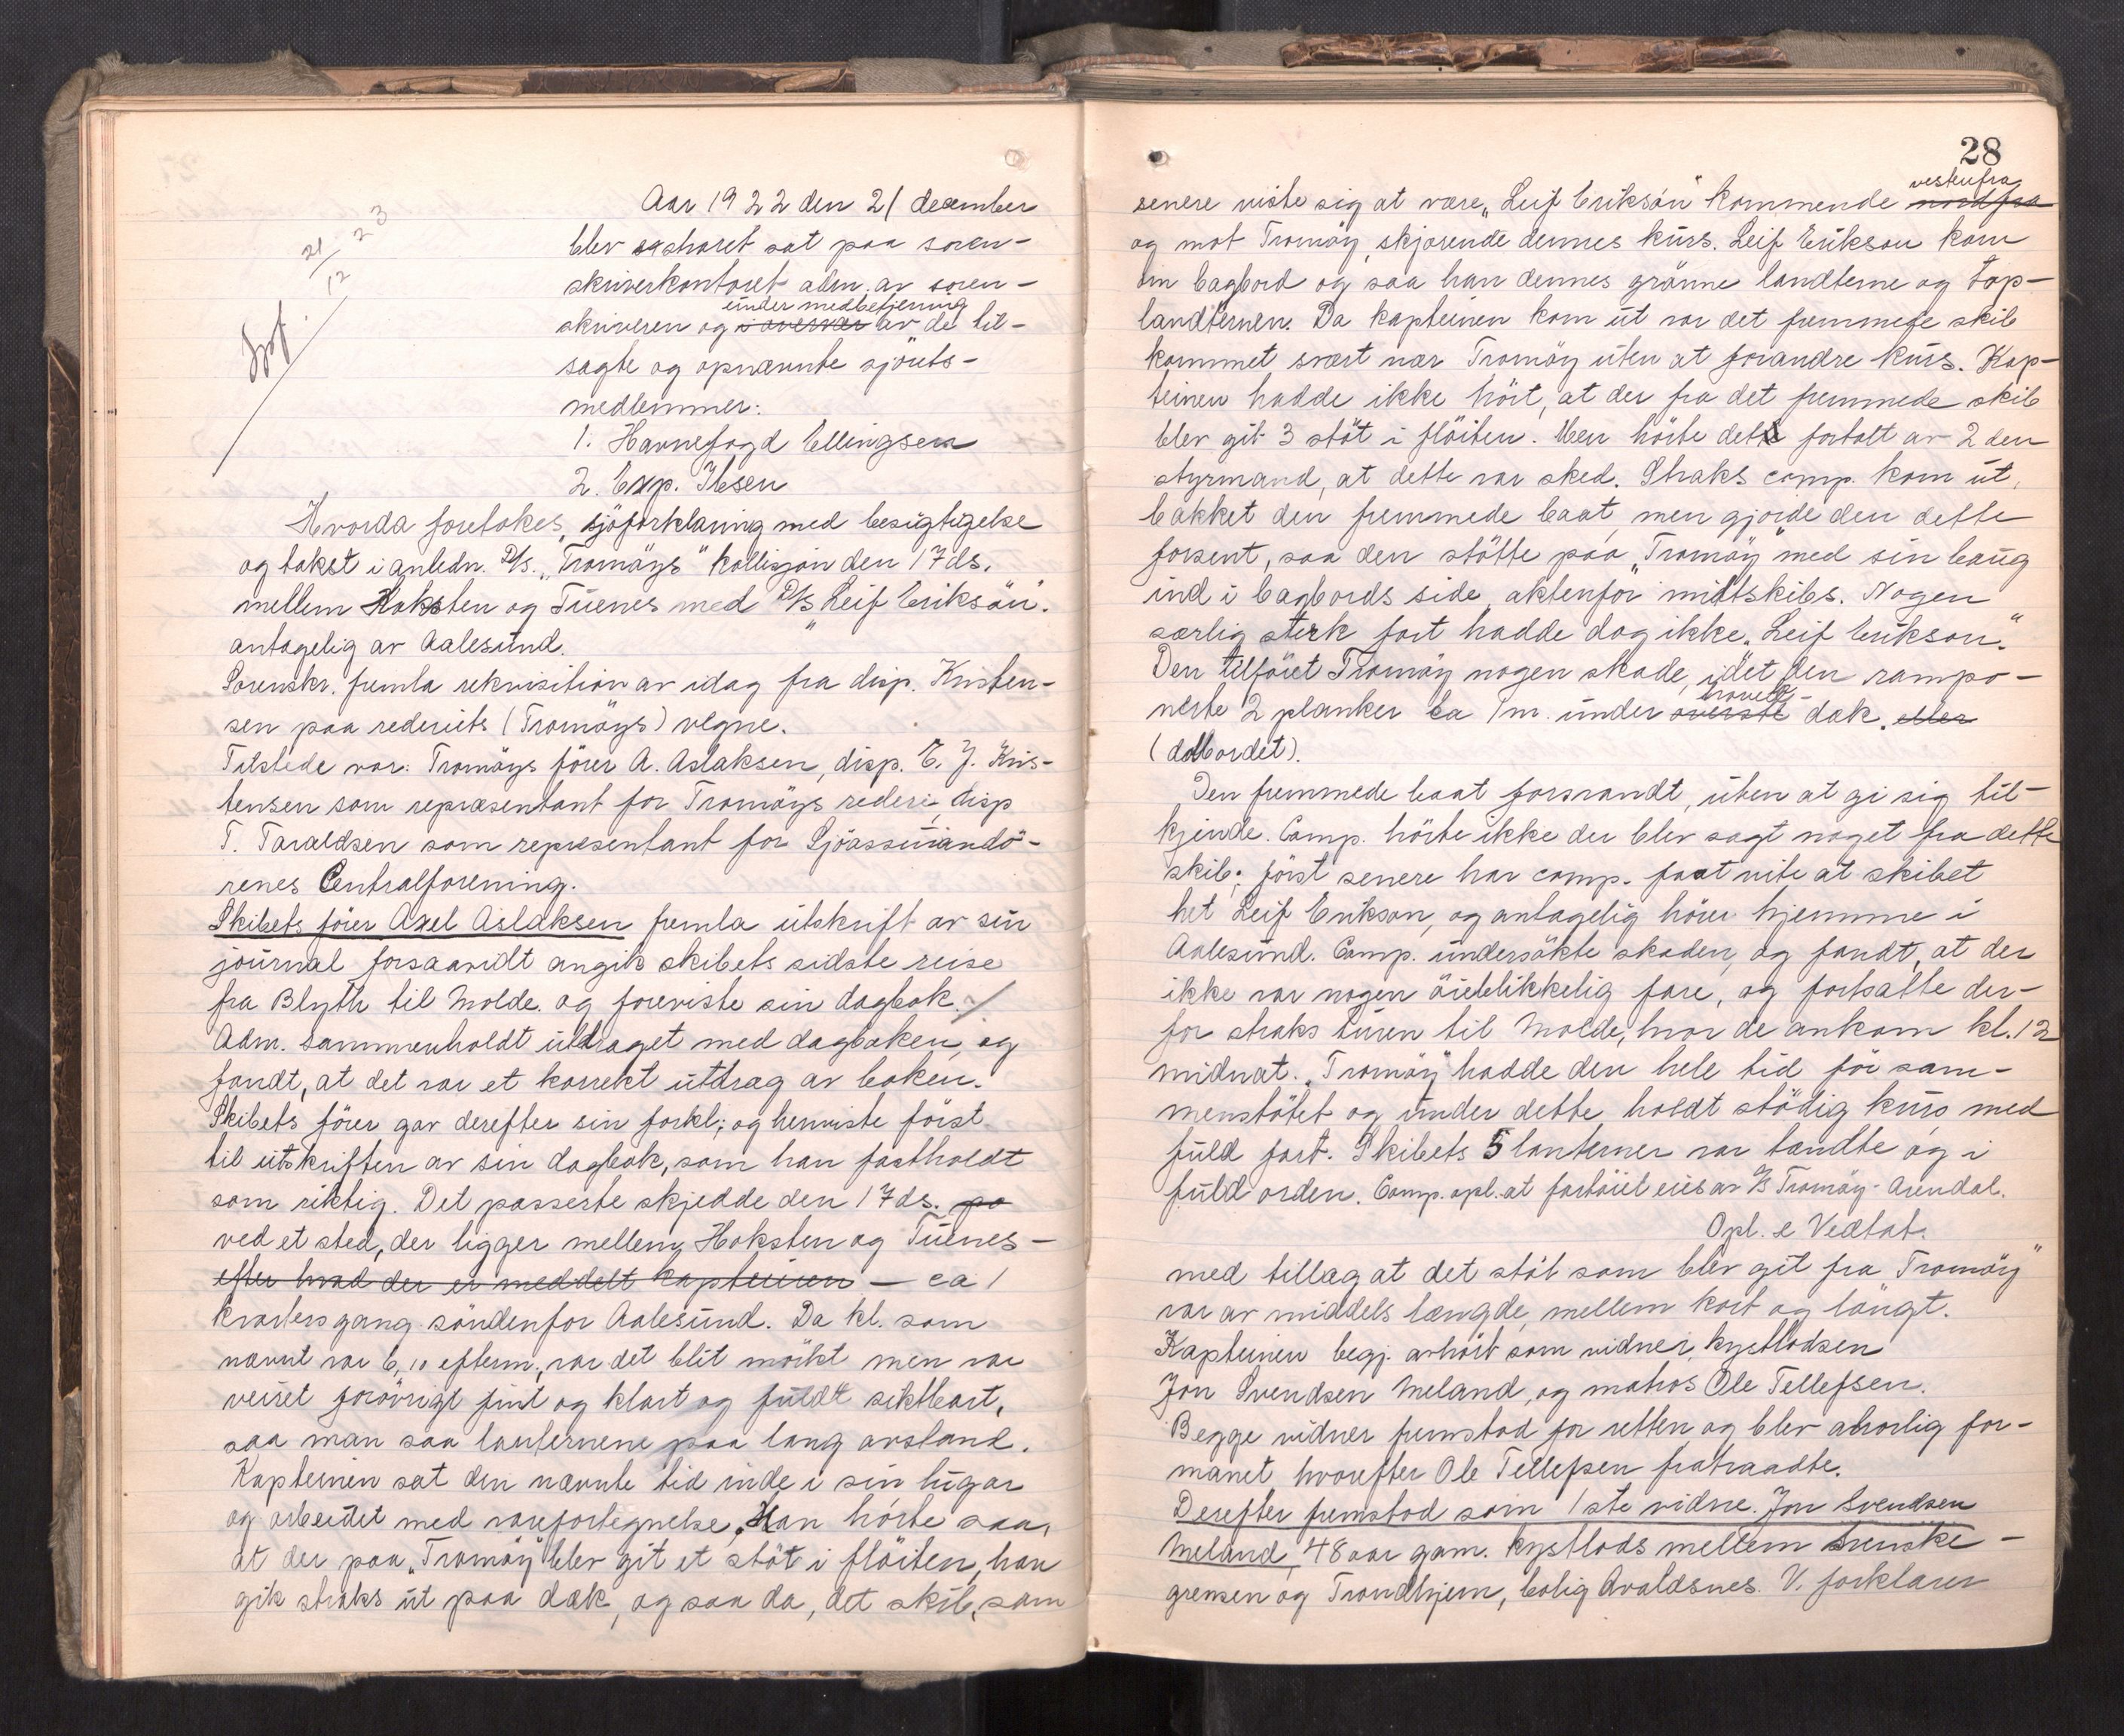 21/12 23
Aar 1922 den 21 december
blev sjöret sat paa soren-
skriverkontoret adm. av soren-
under medbetjening
skriveren og i overvær av de til-
sagte og opnævnte sjörets-
medlemmer:
1. Havnefogd Ellingsen
2. Exp. Ibsen
Hvorda foretokes sjöforklaring med besigtigelse
og takst i anledn. D/s. „Tromöys" kollisjon den 17 ds.
mellem Hoksten og Tuenes med D/s „Leif Erikson".
antagelig av Aalesund.
Sorenskr. fremla rekvisition av idag fra disp. Kristen-
sen paa rederiets (Tromöys) vegne.
Tilstede var: Tromöys förer A. Aslaksen, disp. E. J. Kris-
tensen som repræsentant for Tromöys rederi, disp
T. Taraldsen som representant for Sjöassurandö-
renes Centralforening.
Skibets förer Axel Aslaksen fremla utskrift av sin
journal forsaavidt angik skibets sidste reise
fra Blyth til Molde. og foreviste sin dagbok. /
Adm. sammenholdt utdraget med dagboken, og
fandt, at det var et korrekt utdrag av boken.
Skibets förer gav derefter sin forkl; og henviste först
til utskriften av sin dagbok, som han fastholdt
som riktig. Det passerte skjedde den 17 ds. pa
ved et sted, der ligger mellem Hoksten og Tuenes -
efter hvad der er meddelt kapteinen - ca 1
kvarters gang söndenfor Aalesund. Da kl. som
nævnt var 6,10 efterm., var det blit mörkt men var
veiret forövrigt fint og klart og fuldt siktbart,
saa man saa lanternene paa lang avstand.
Kapteinen sat den nævnte tid inde i sin lugar
og arbeidet med varefortegnelse. Han hörte saa,
at der paa „Tromöy" blev git et stöt i flöiten, han
gik straks ut paa dæk, og saa da, det skib, som
28
vestenfra
senere viste sig at være „Leif Erikson" kommende nordfra
og mot Tromöy, skjærende dennes kurs. Leif Erikson kom
om bagbord og saa han dennes grönne landterne og top-
landternen. Da kapteinen kom ut var det fremmede skib
kommet svært nær Tromöy uten at forandre kurs. Kap-
teinen hadde ikke hört, at der fra det fremmede skib
blev git 3 stöt i flöiten. Men hörte det fortalt av 2 den
styrmand, at dette var sked. Straks comp. kom ut,
bakket den fremmede baat, men gjorde den dette
forsent, saa den stötte paa „Tromöy" med sin baug
ind i bagbords side, aktenfor midtskibs. Nogen
særlig sterk fart hadde dog ikke „Leif Erikson."
Den tilföiet Tromöy nogen skade, idet den rampo-
nerte 2 planker ca 1 m. under överste dæk. eller
(dolbordet).
Den fremmede baat forsvandt, uten at gi sig til-
kjende. Comp. hörte ikke der blev sagt noget fra dette
skib; först senere har comp. faat vite at skibet
het Leif Erikson, og antagelig hörer hjemme i
Aalesund. Comp. undersökte skaden, og fandt, at der
ikke var nogen öieblikkelig fare, og fortsatte der-
for straks turen til Molde, hvor de ankom kl. 12
midnat. „Tromöy" hadde den hele tid för sam-
menstötet og under dette holdt stödig kurs med
fuld fart. Skibets 5 lanterner var tændte og i
fuld orden. Comp. opl. at fartöiet eies av A/s Tromöy - Arendal.
Opl. e Vedtat.
med tillæg at det stöt som blev git fra „Tromöy"
var av middels længde, mellem kort og langt.
Kapteinen begj. avhört som vidner, kystlodsen
Jon Svendsen Meland, og matros Ole Tellefsen.
Begge vidner fremstod for retten og blev alvorlig for-
manet hvorefter Ole Tellefsen fratraadte.
Derefter fremstod som 1ste vidne Jon Svendsen
Meland, 48 aar gam. kystlods mellem svenske-
grensen og Trondhjem, bolig Avaldsnes. V. forklarer